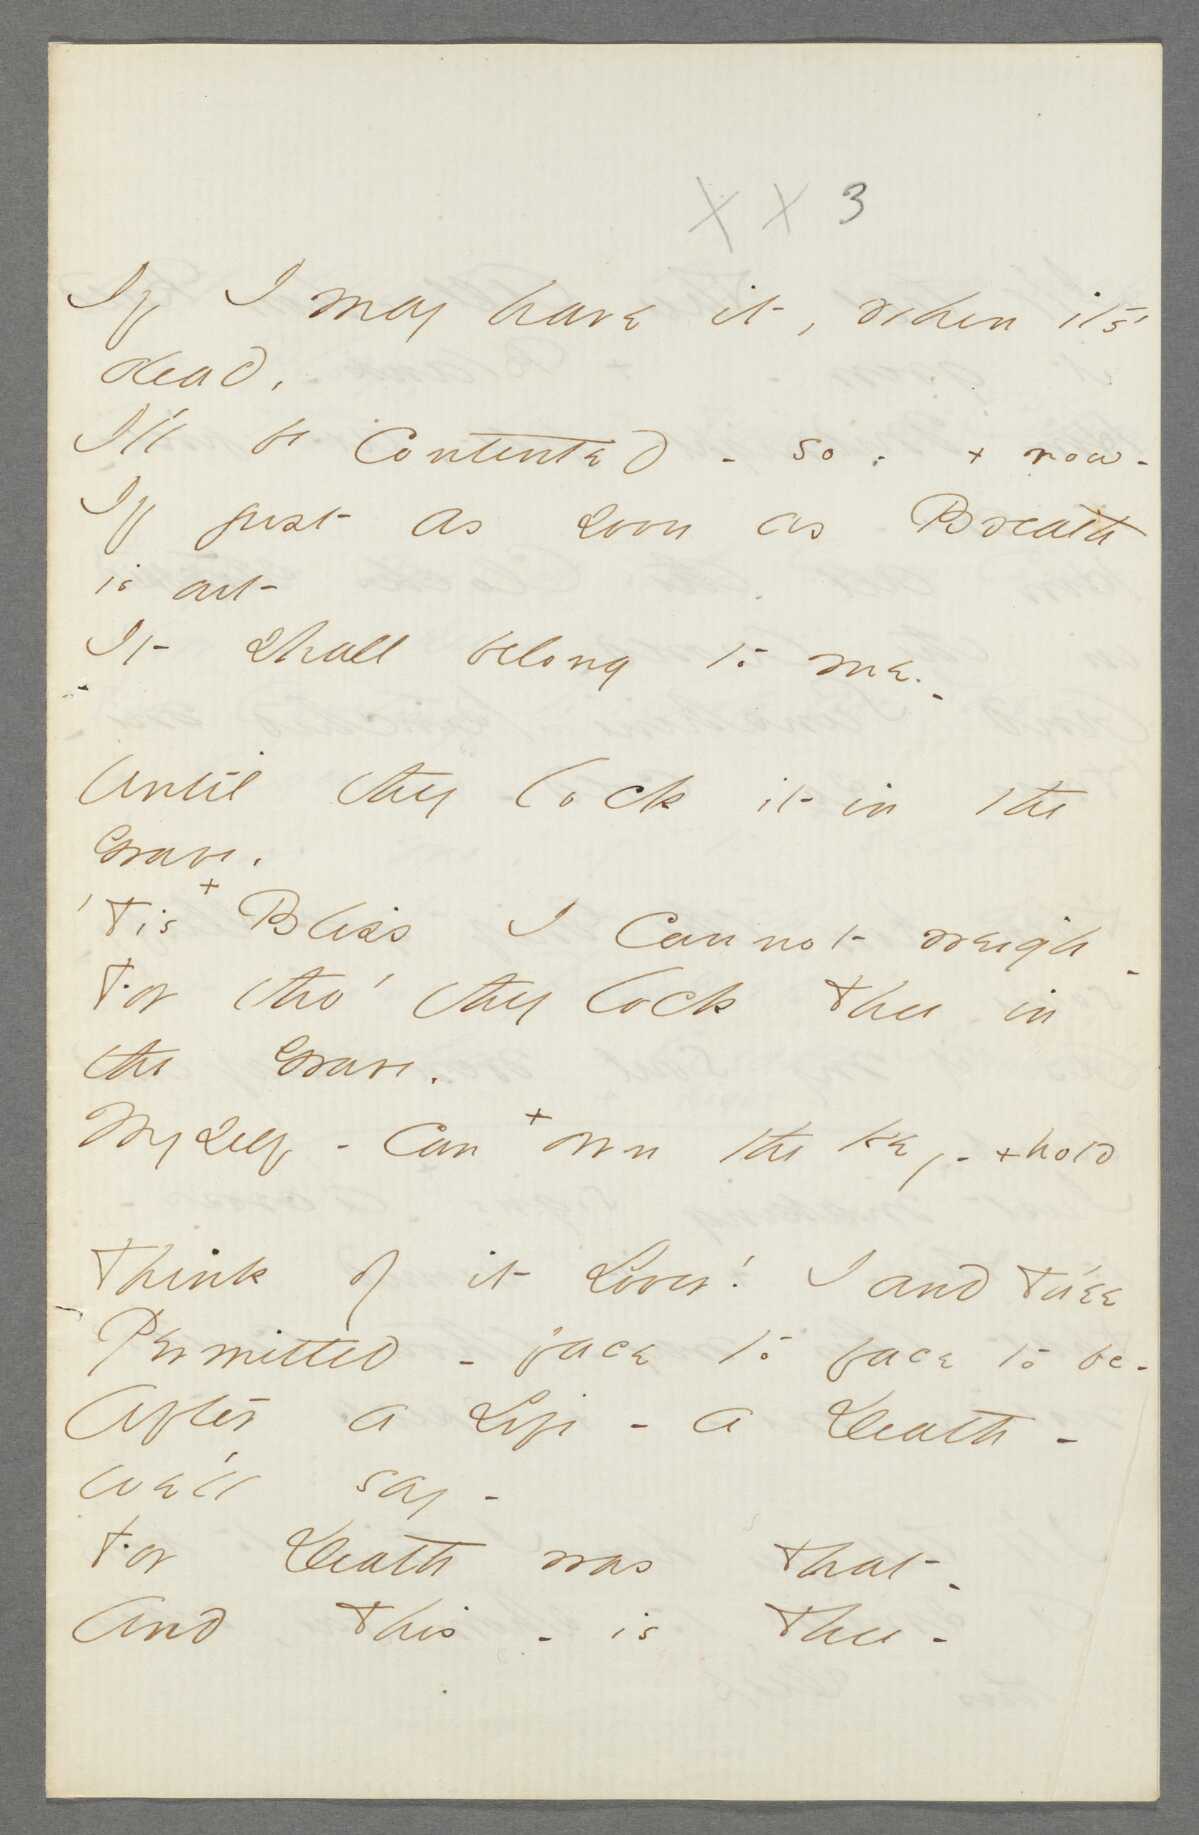 X X 3
If I may have it, when it's
dead,
I'll be Contented - so - + now -
If just as soon as Breath
is out
It shall belong to me -
Until they lock it in the
Grave,
'Tis + Bliss I cannot weigh -
For tho' they lock Thee in
the Grave,
Myself - can + own the key - + hold
Think of it Lover! I and Thee
Permitted - face to face to be -
After a Life - a Death -
we'll say -
For Death was That -
And This - is Thee -